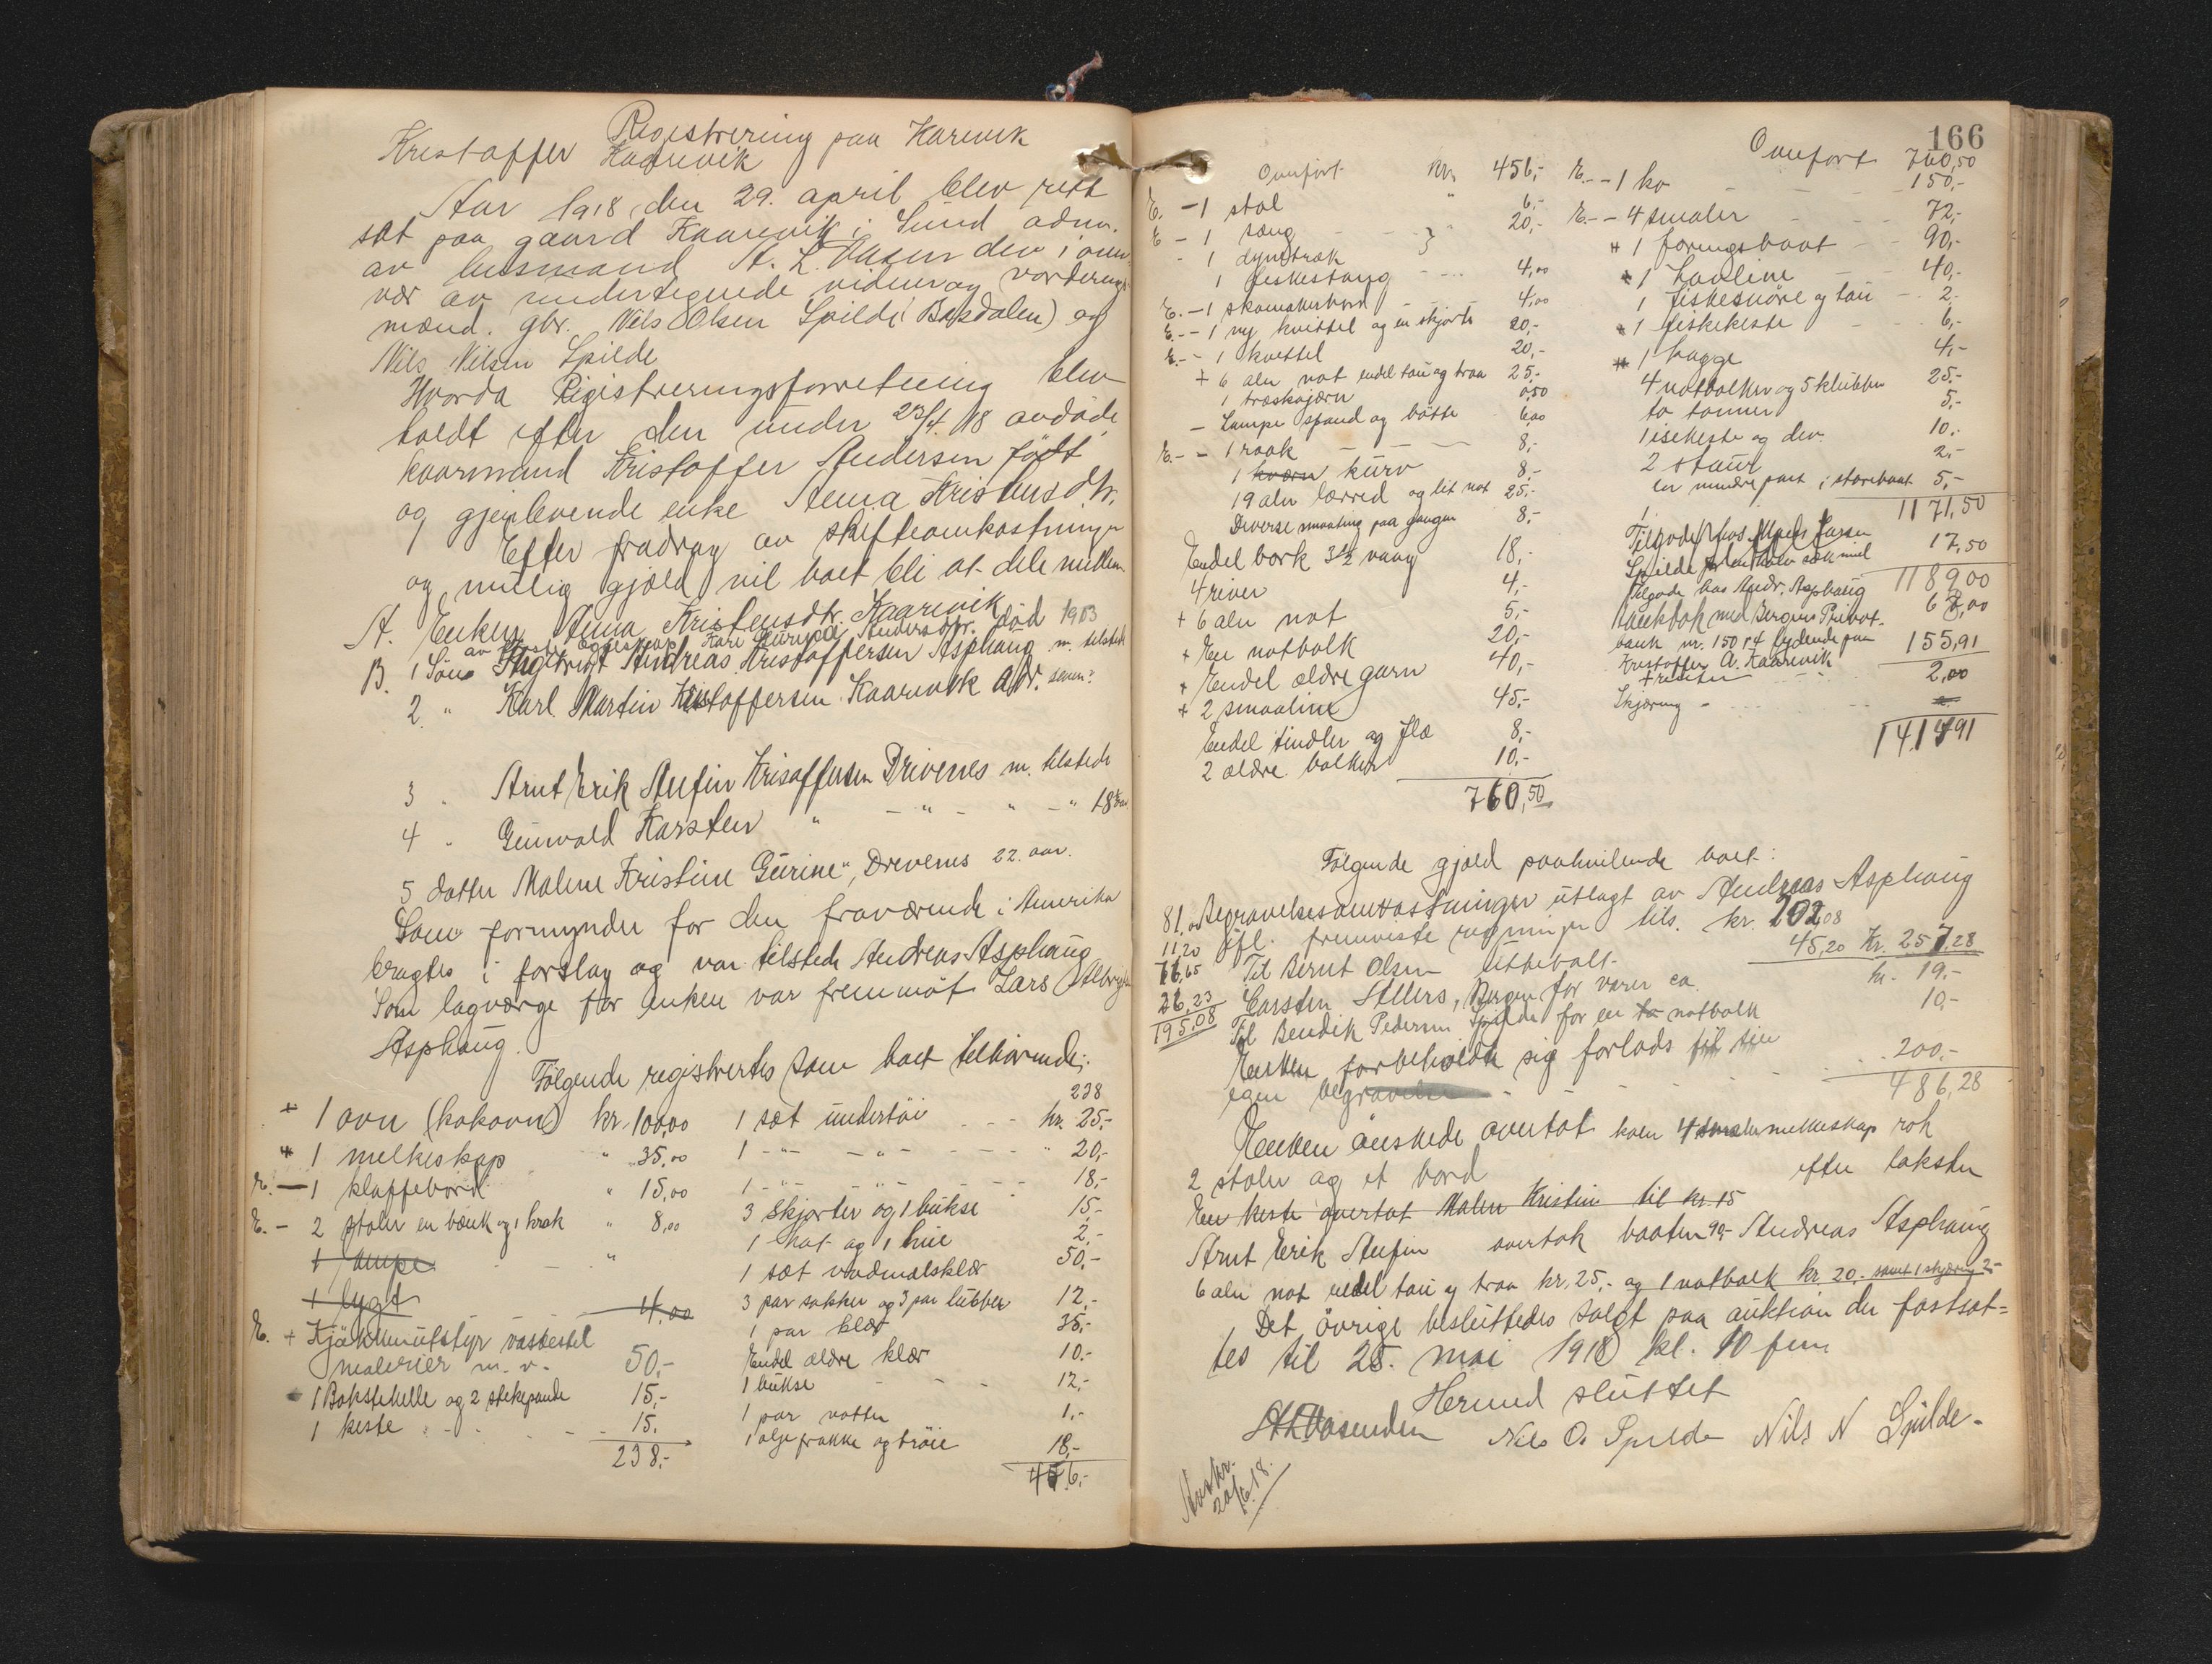 Registrering paa Karevik
Kristoffer Kaarevik
Aar 1918 den 29. april blev rett
sat paa gaard Kaarevik i Sund adm.
av lensmand A. L. Vasen den i over
vær av undertegnede vidner og vorderings
mænd. gbr. Nils Olsen Spilde (Bakdalen) og
Nils Nilsen Spilde
Hvorda Registreringsforretning blev
holdt efter den under 23/4 18 avdøde
kaarmand Kristoffer Andersen født
og gjenlevende enke Anna Kristensdtr.
Efter fradrag av skifteomkostninger
og mulig gjæld vil boet bli at dele mellem
A. Enken Anna Kristensdtr. Kaarevik
av første Egteskap Kari Andersdtr. død 1903
B. 1 Søn Andreas Kristoffersen Asphaug m. tilstede
2. " Karl Martin Kristoffersen Kaarevik
3 " Arnt Erik Anfin Krisoffersen Drivenes m. tilstede
4 " Gunvald Karsten " - " - " - " 18 aar
5 datter Malene Kristine Gurine", Drevenes 22. aar.
Som formynder for den fraværende i Amerika
bragtes i forslag og var tilstede Andreas Asphaug
Som lagværge for enken var fremmøt Lars
Asphaug.
Følgende registrertes som boet tilhørende:
+ 1 ovn (kokovn) kr. 100,00
+ 1 melkeskap " 35,00
E. - 1 klaffebord " 15,00
E. - 2 stoler en bænk og 1 krak " 8,00
1 lampe "
1 lygt 4,00
E. + Kjøkkenutstyr vaskestel
malerier m. v. 50,-
1 Bakstehelle og 2 stekepande 15,-
1 keste 15.
238,-
238
1 sæt undertøi kr. 25,-
1 -"- -"- " 20,-
1 -"- -"- 18,-
3 skjorter og 1 bukse 15,-
1 hat og 1 hue 2,-
1 sæt vadmalsklær 50,-
3 par sokker og 3 par lubber 12,-
1 par klær 35,-
Endel ældre klær 10,-
1 bukse 12,-
1 par votter 1,-
1 oljefrakke og trøie 18,-
456,-
166
Overført kr. 456,-
E. - 1 stol " 6,-
E - 1 sæng 20,-
- 1 dyntræk
1 fiskestang 4,00
E. - 1 skomakerbord 4,00
E. - - 1 ny kvittel og en skjorte 20,-
E. - - 1 kvittel 20,-
+ 6 alen not endel tau og traa 25,-
1 træskojern 0,50
- Lampe spand og bøtte 6,00
E. - - 1 raak 8,-
1 kværn kurv 8,-
19 alen lærred og lit not 25,-
Diverse smaating paa gangen 8,-
Endel bark 3 1/2 vaag 18,-
4 river 4,-
+ 6 alen not 5,-
+ En notbolk 20,-
+ Endel ældre garn 40,-
+ 2 smaaline 45,-
Endel tindler og flæ 8,-
2 ældre bolker 10,-
760,50
Overført 760,50
E. - - 1 ko 150,-
E. - - 4 smaler 72,-
+ 1 føringsbaat 90,-
+ 1 havline 40,-
1 fiskesnøre og tau 2,-
+ 1 fiskekeste 6,-
+ 1 hagge 4,-
4 notbolker og 5 klubber 25,-
to tønner 5,-
1 isekeste og div. 10,-
2 staur 2,-
en mindre part i storebaat 5,-
1171,50
Tilgode hos Larsen
Spilde for en halv sæk mel 17,50
1189,00
Tilgode hos Andr. Asphaug 67,00
Bankbok med Bergens Privat-
bank nr. 15014 lydende paa
Kristoffer A. Kaarevik 155,91
+ renter
Skjæring - 2,00
1414,91
Følgende gjæld paahvilende boet:
Begravelsesomkostninger utlagt av Andreas Asphaug
ifl. fremviste regninger tils. kr. 202,08
Til Bernt Olsen utbetalt 45,20 Kr. 257,28
Carsten Stellers, Bergen for varer ca. kr. 19,-
Til Bendik Pedersen Spilde for en notbolk 10,-
Enken forbeholdt sig forlods til sin
egen begravelse 200,-
486,28
81,00
11,20
76,65
26,23
195,08
Enken ønskede overtat koen 4 smaler melkeskap rok
2 stoler og et bord efter taksten
En keste overtat Malen Kristine til kr. 15
Arnt Erik Anfin overtok baaten 90,- Andreas Asphaug
6 alen not endel tau og traa kr. 25,- og 1 notbolk kr. 20,- samt 1 skjæring 2-
Det øvrige besluttedes solgt paa auktion der fastsat=
tes til 25. mai 1918 kl. 10 fm
Hermed sluttet
A L Vasenden Nils O. Spilde Nils N Spilde.
Avskr.
20/6.18.